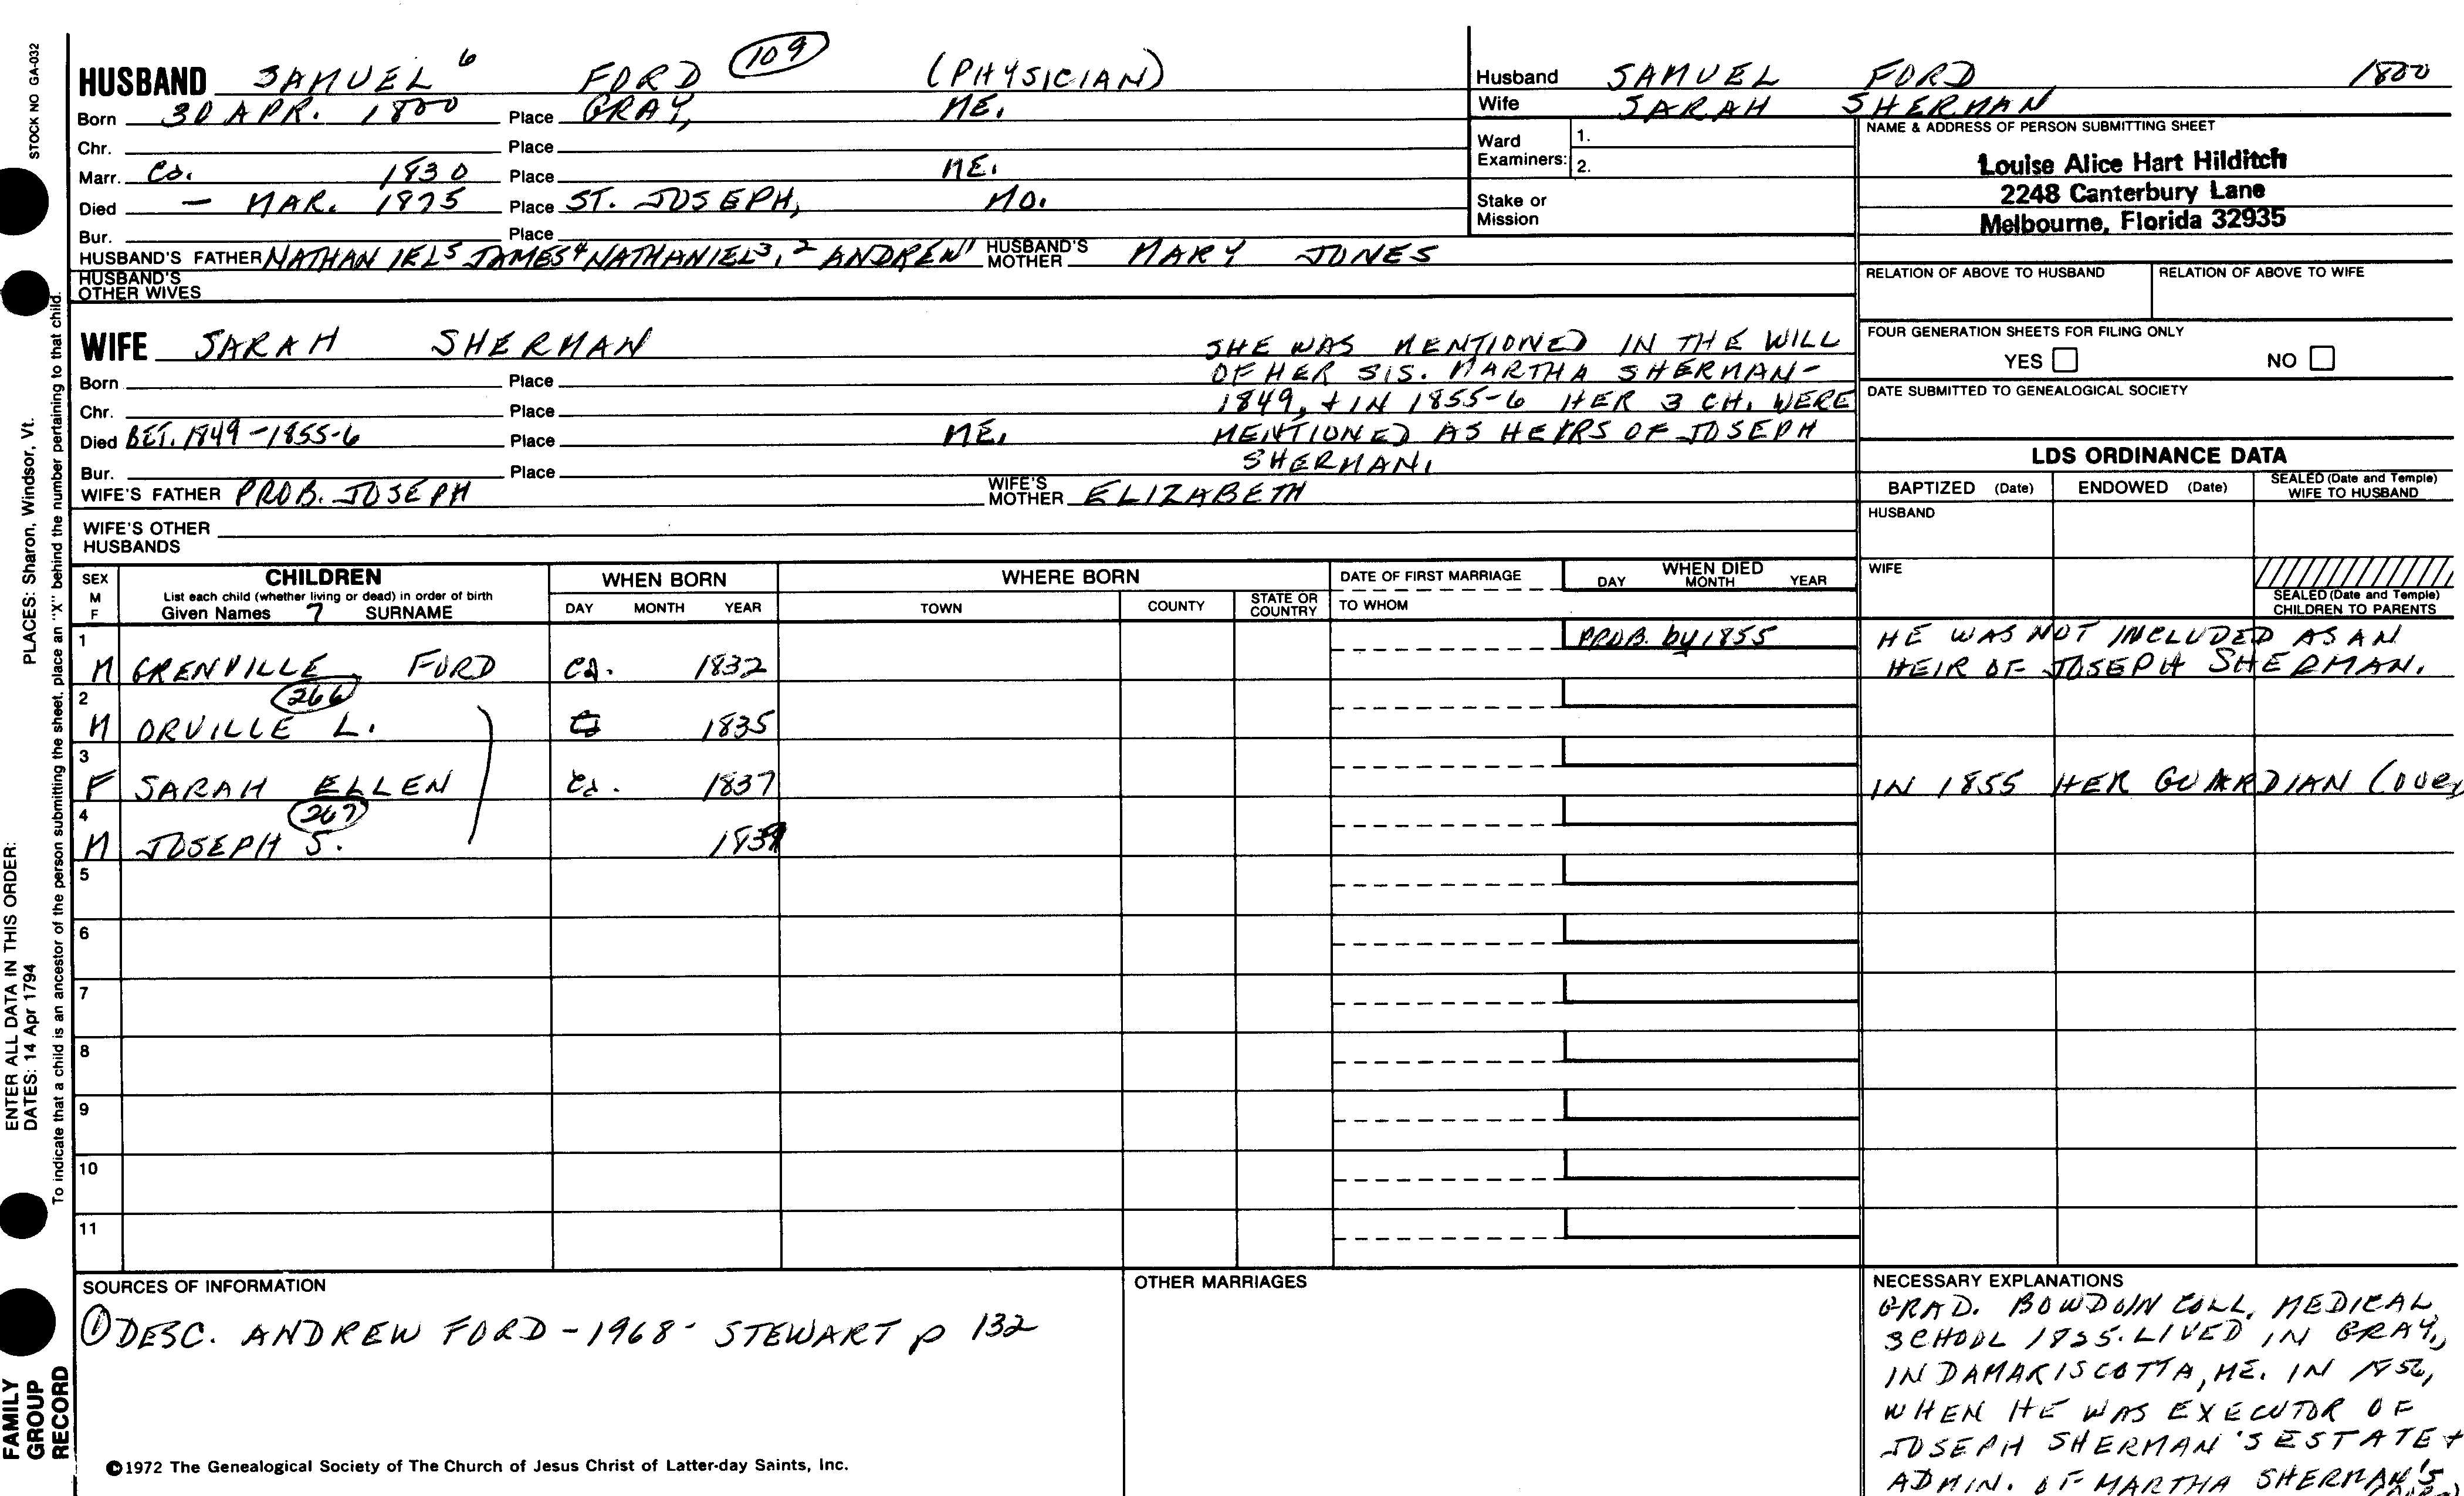 STOCK NO GA-032
HUSBAND SAMUEL 6 FORD 109 (PHYSICIAN)
Born 30 APR. 1800 Place GRAY, ME.
Chr. Place
Marr. Ca. 1830 Place ME.
Died — MAR. 1875 Place ST. JOSEPH, MO.
Bur. Place
HUSBAND'S FATHER NATHANIEL5 JAMES4 NATHANIEL3,2 ANDREW1 HUSBAND'S MOTHER MARY JONES
HUSBAND'S OTHER WIVES
Husband SAMUEL FORD 1800
Wife SARAH SHERMAN
Ward Examiners: 1.
2.
Stake or Mission
NAME & ADDRESS OF PERSON SUBMITTING SHEET
Louise Alice Hart Hilditch
2248 Canterbury Lane
Melbourne, Florida 32935
RELATION OF ABOVE TO HUSBAND RELATION OF ABOVE TO WIFE
FOUR GENERATION SHEETS FOR FILING ONLY
YES NO
DATE SUBMITTED TO GENEALOGICAL SOCIETY
WIFE SARAH SHERMAN
Born Place
Chr. Place
Died BET. 1849-1855-6 Place ME.
Bur. Place
WIFE'S FATHER PROB. JOSEPH WIFE'S MOTHER ELIZABETH
WIFE'S OTHER HUSBANDS
SHE WAS MENTIONED IN THE WILL
OF HER SIS. MARTHA SHERMAN-
1849, + IN 1855-6 HER 3 CH. WERE
MENTIONED AS HEIRS OF JOSEPH
SHERMAN.
LDS ORDINANCE DATA
BAPTIZED (Date) ENDOWED (Date) SEALED (Date and Temple) WIFE TO HUSBAND
HUSBAND
WIFE
SEALED (Date and Temple) CHILDREN TO PARENTS
SEX M F
CHILDREN
List each child (whether living or dead) in order of birth
Given Names 7 SURNAME
WHEN BORN
DAY MONTH YEAR
WHERE BORN
TOWN COUNTY STATE OR COUNTRY
DATE OF FIRST MARRIAGE
TO WHOM
WHEN DIED
DAY MONTH YEAR
1 M GRENVILLE FORD Ca. 1832 PROB. by 1855 HE WAS NOT INCLUDED AS AN
HEIR OF JOSEPH SHERMAN.
2 266
M ORVILLE L. 1835
3
F SARAH ELLEN Ca. 1837 IN 1855 HER GUARDIAN (over
4 267
M JOSEPH S. 1839
5
6
7
8
9
10
11
SOURCES OF INFORMATION
① DESC. ANDREW FORD - 1968 - STEWART p 132
OTHER MARRIAGES
NECESSARY EXPLANATIONS
GRAD. BOWDOIN COLL. MEDICAL
SCHOOL 1835. LIVED IN GRAY,
IN DAMARISCOTTA, ME. IN 1856,
WHEN HE WAS EXECUTOR OF
JOSEPH SHERMAN'S ESTATE +
ADMIN. OF MARTHA SHERMAN'S
©1972 The Genealogical Society of The Church of Jesus Christ of Latter-day Saints, Inc.
ENTER ALL DATA IN THIS ORDER:
DATES: 14 Apr 1794 PLACES: Sharon, Windsor, Vt.
To indicate that a child is an ancestor of the person submitting the sheet, place an "X" behind the number pertaining to that child.
FAMILY
GROUP
RECORD